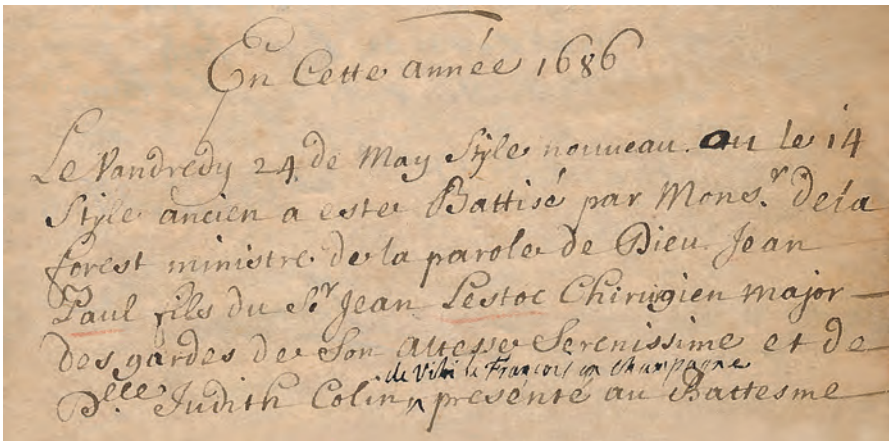 En Cette année 1686
Le Vandredy 24 de May Style nouveau. ou le 14
Style ancien a este Battisé par Monsr. de la
forest ministre de la parole de Dieu. Jean
Paul fils du Sr Jean Lestoc Chirugien major
des gardes de Son Altesse Serenissime et de
de Vitri le François en champagne
Delle Judith Colin présenté au Battesme